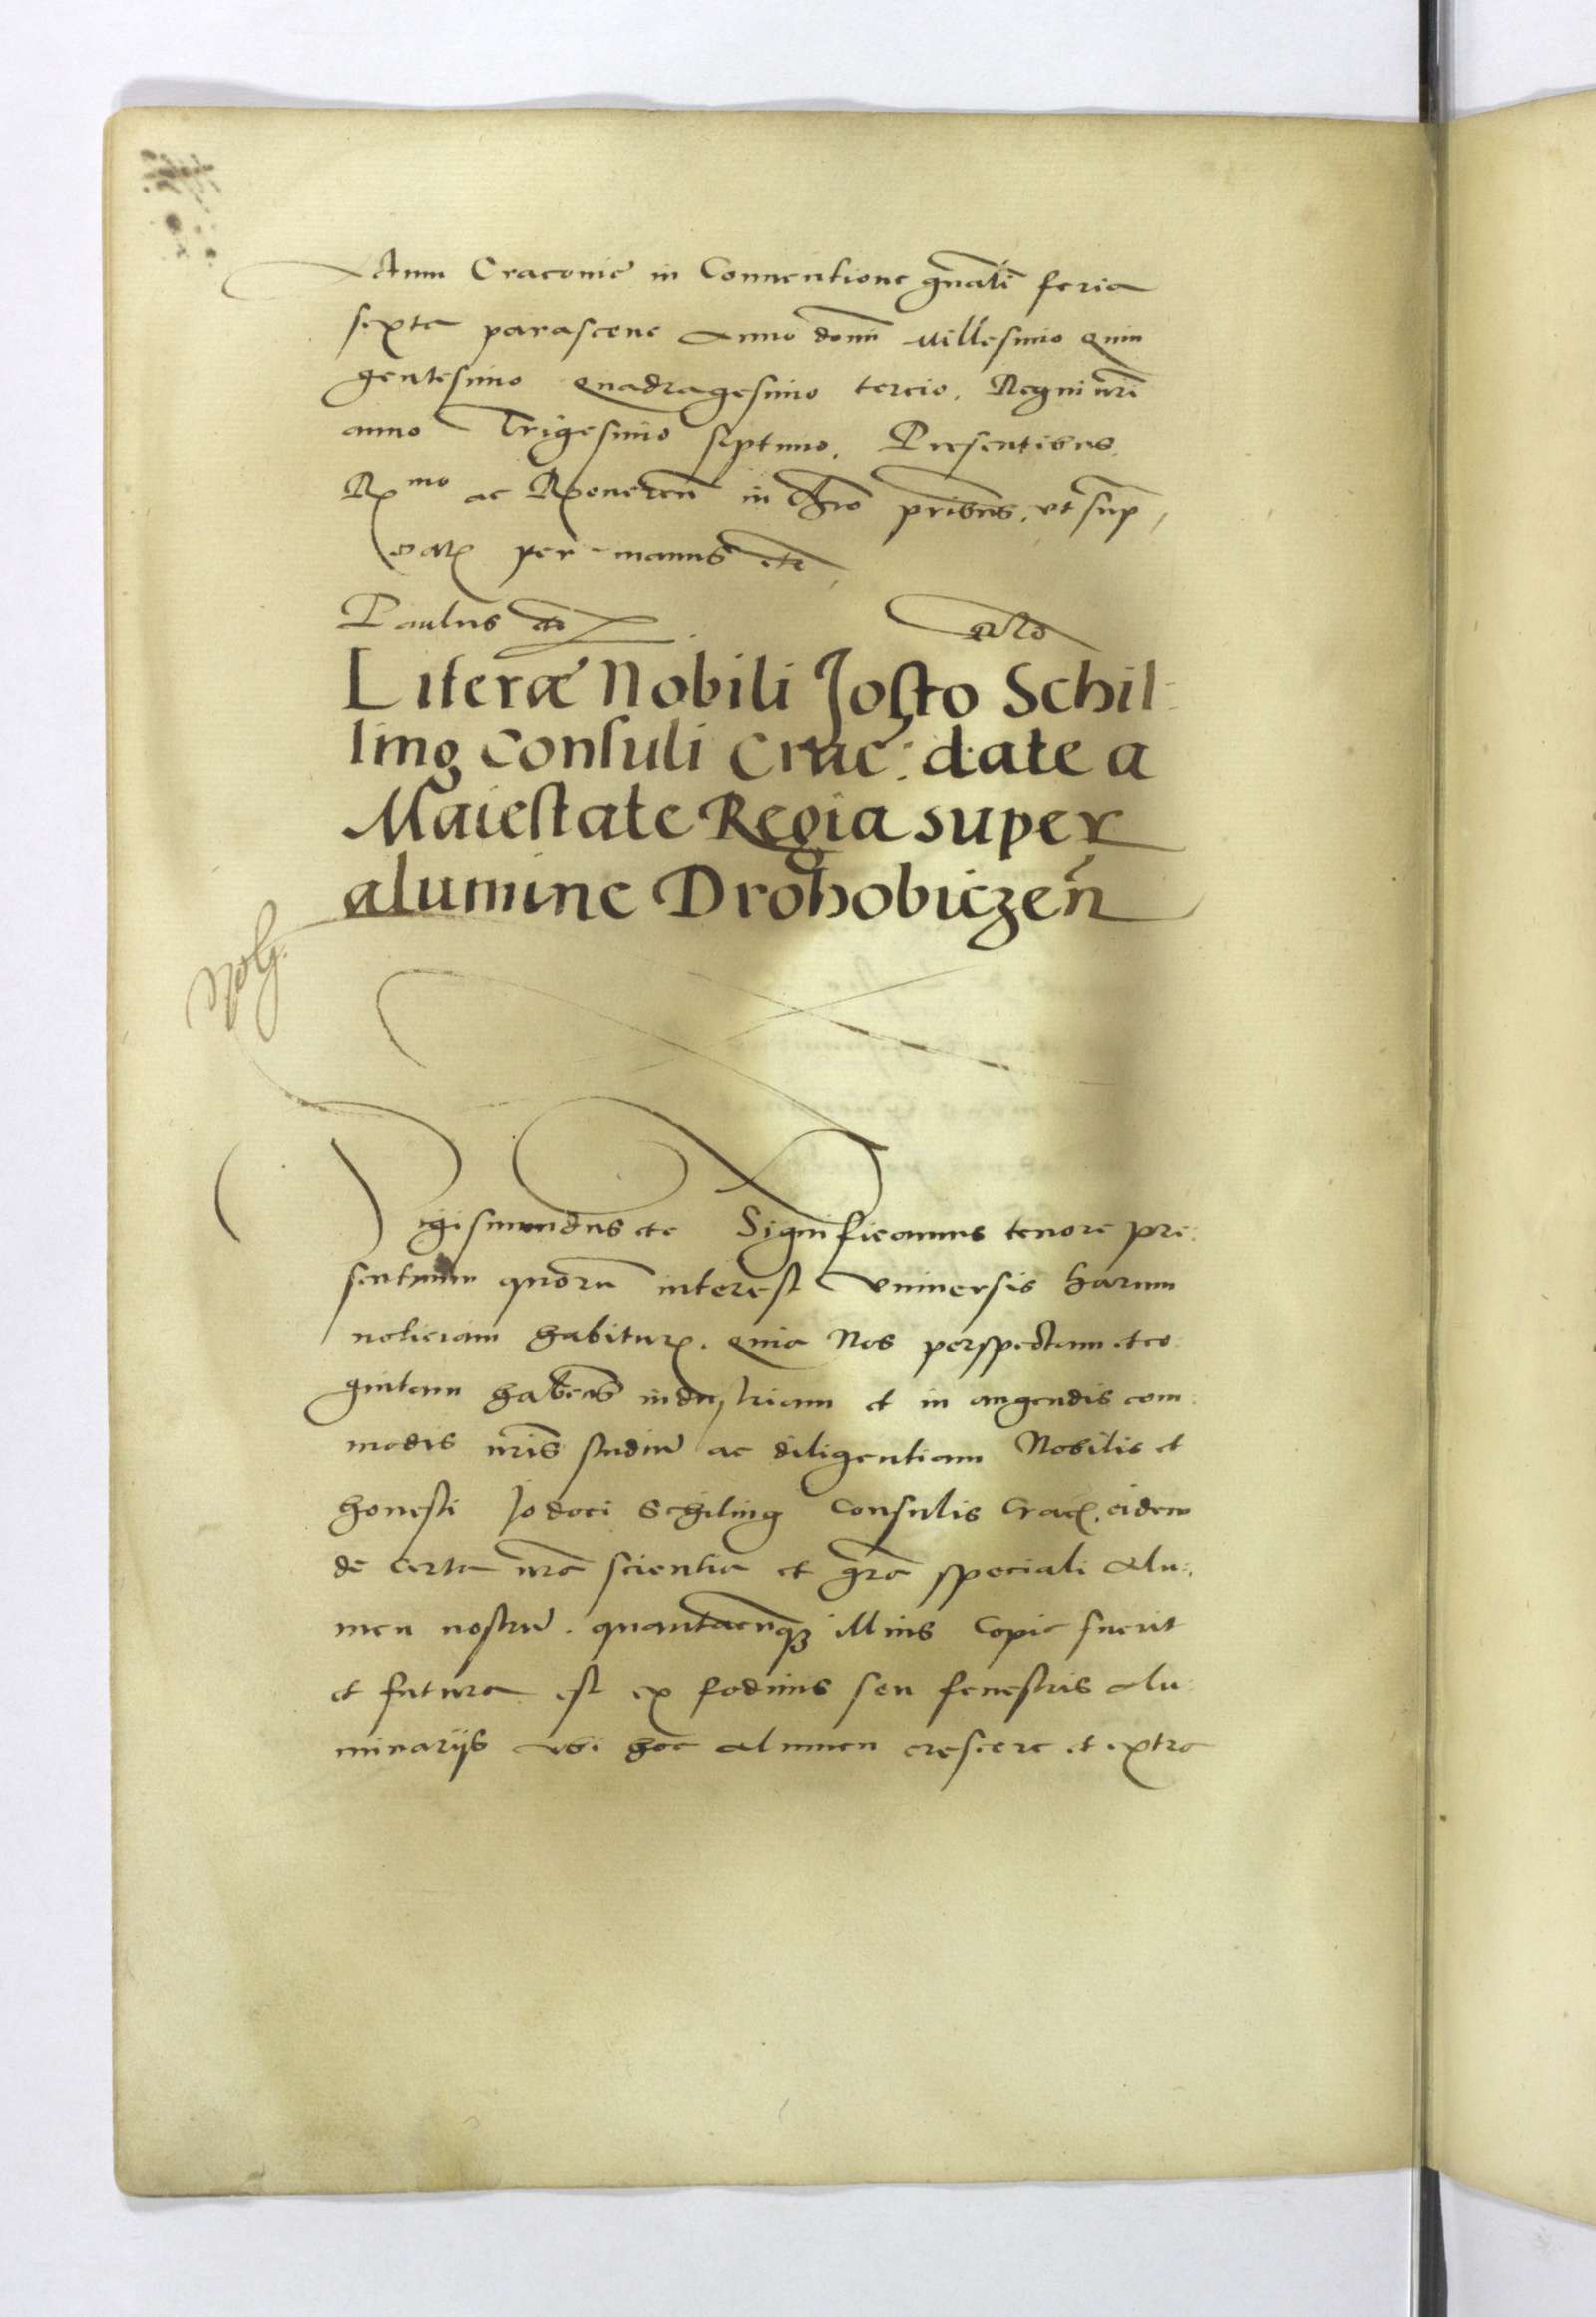 Datum Cracovie in Conventione gnali feria
sexta parasceve Anno domi Millesimo Quin
gentesimo Quadragesimo tercio. Regni nri
anno Trigesimo septimo. Presentibus.
Rmo ac Reveren in Chro pribus. ut sup,
per manus etc
Paulus
Literæ Nobili Josto Schil-
ling Consuli Crac: date a
Maiestate Regia super
alumine Drohobiczen̄
Sigismundus etc Significamus tenore pre:
sentium quorū interest Universis harum
noticiam habitur. Quia Nos perspectam et co
gnitam habentes industriam et in augendis com:
modis nris studiū ac diligentiam Nobilis et
honesti Jodoci Schiling Consulis Crac. eidem
de certa nra scientia et gra speciali Alu:
men nostrū. quantacunque illius Copia fuerit
et futura est ex fodinis seu fenestris Alu:
minarijs ubi hoc alumen crescere et extra